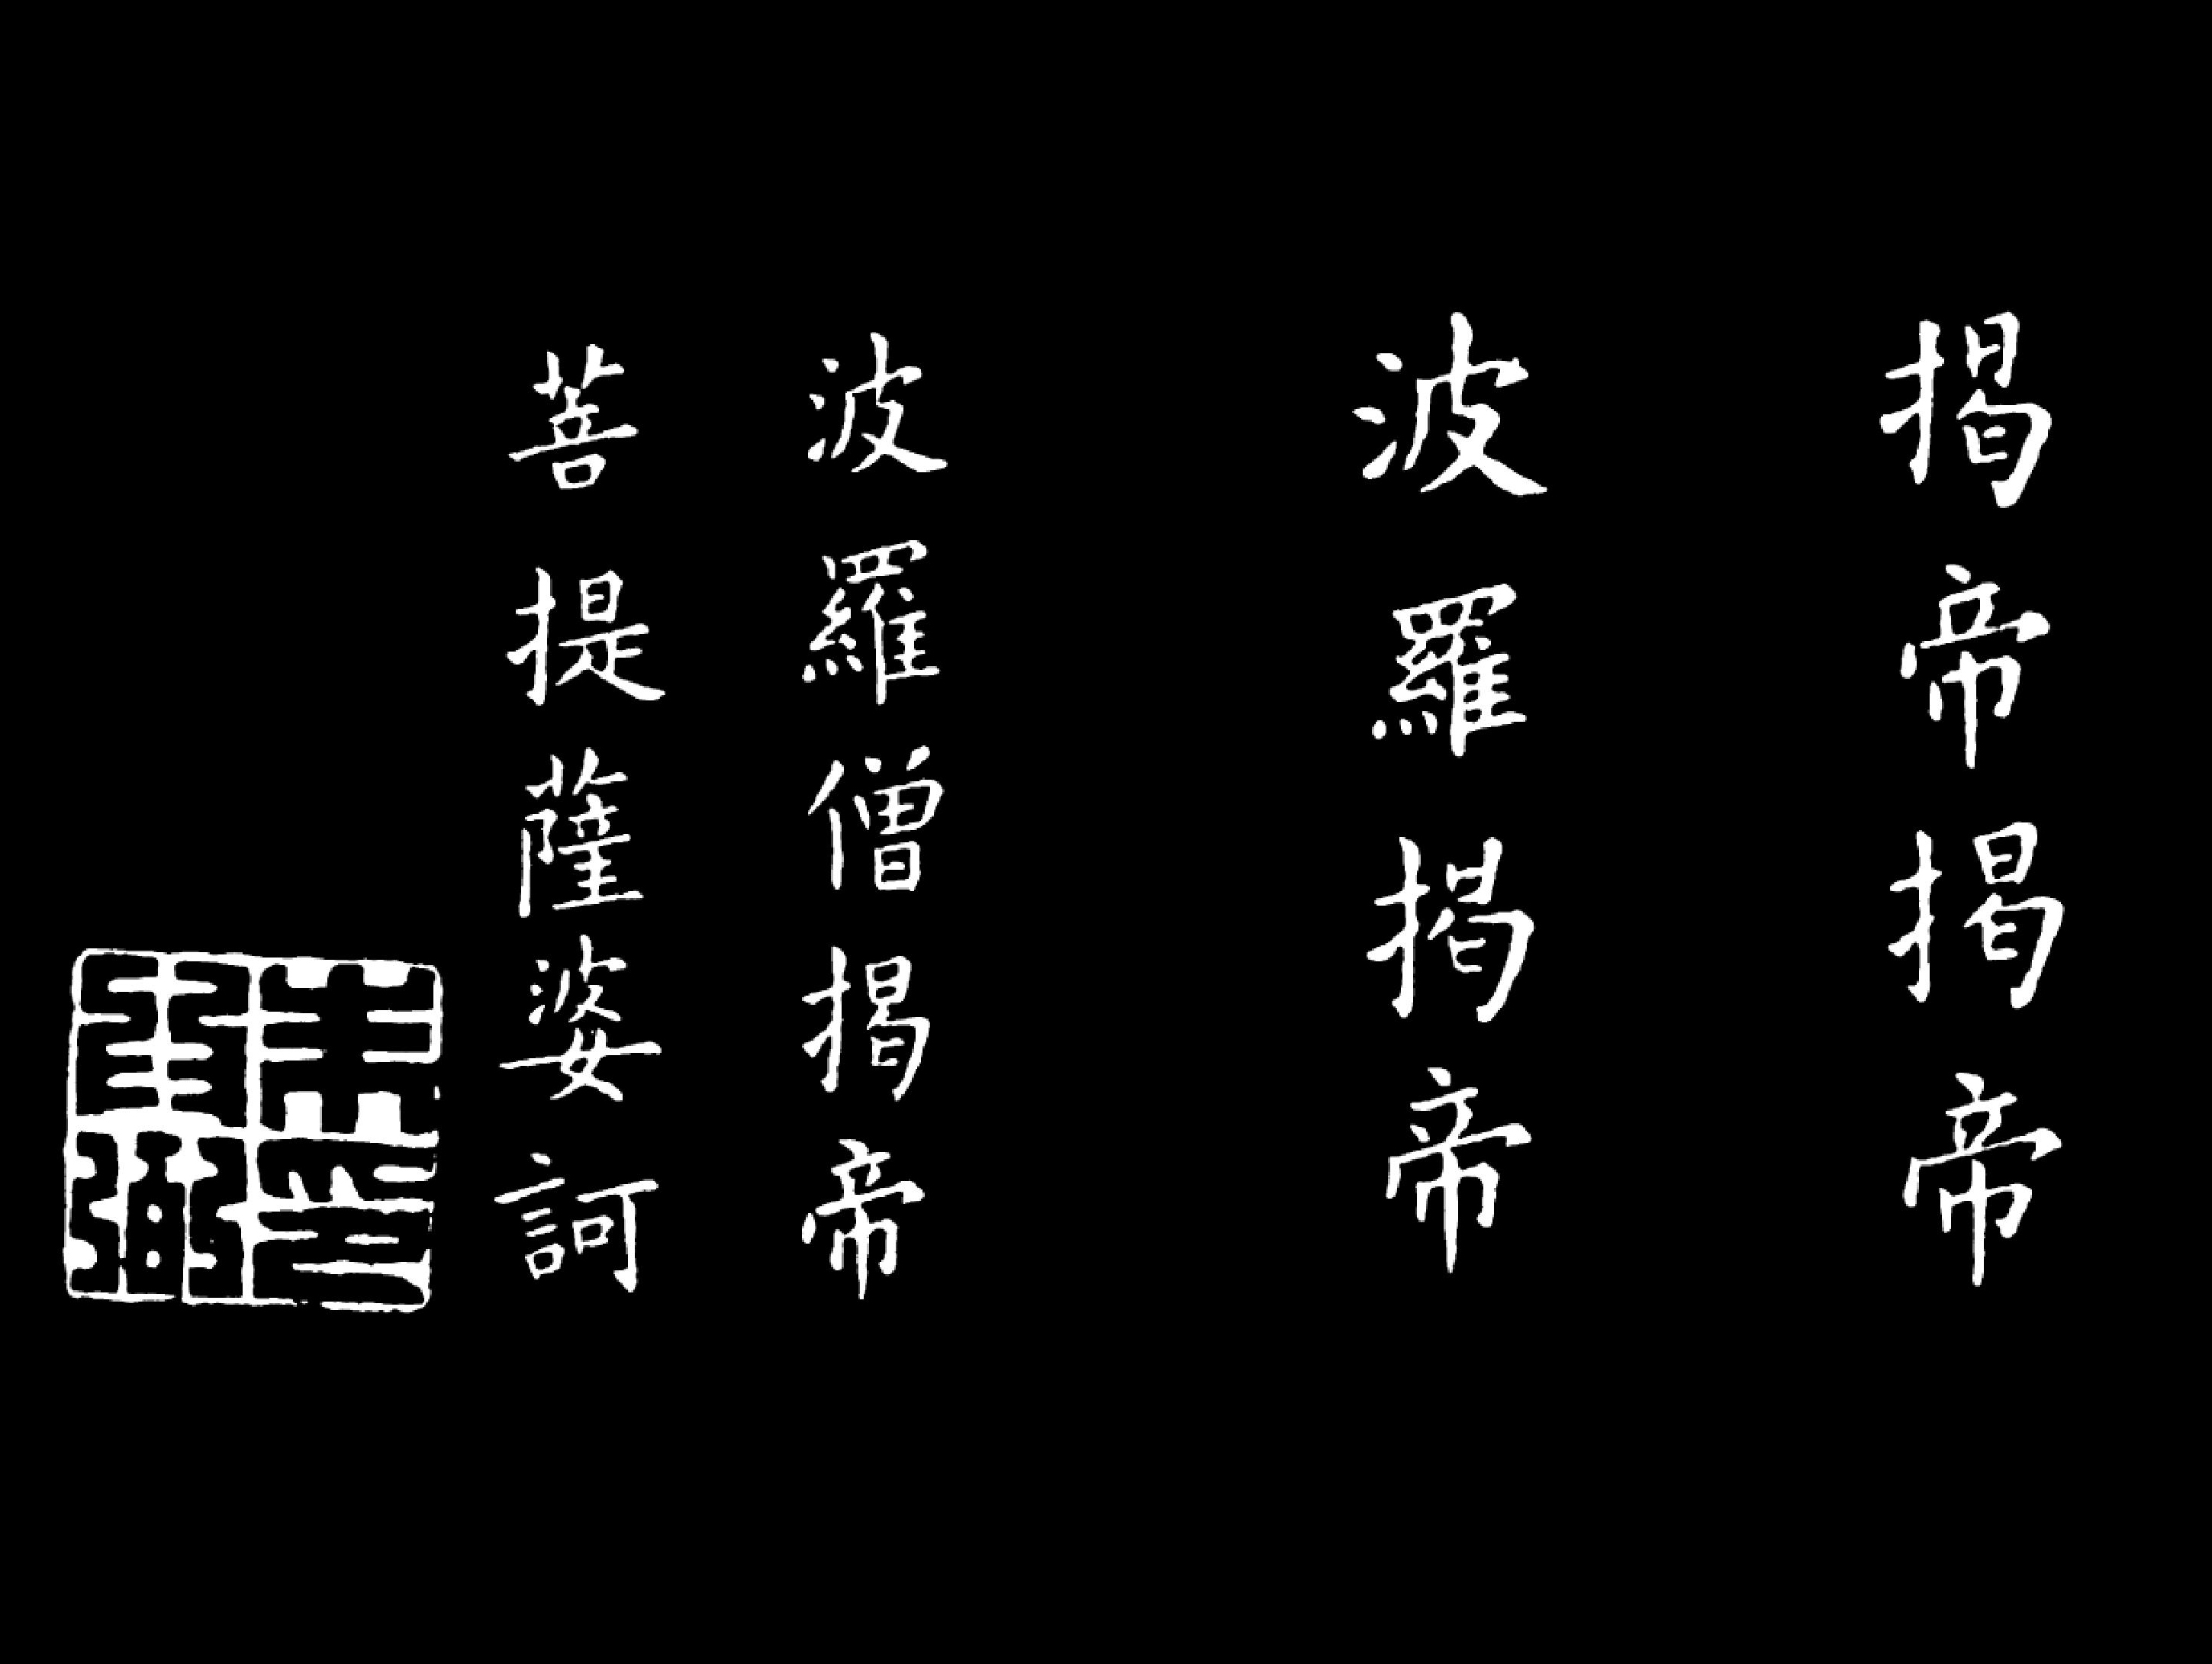 揭帝揭帝
波羅揭帝
波羅僧揭帝
菩提薩婆訶